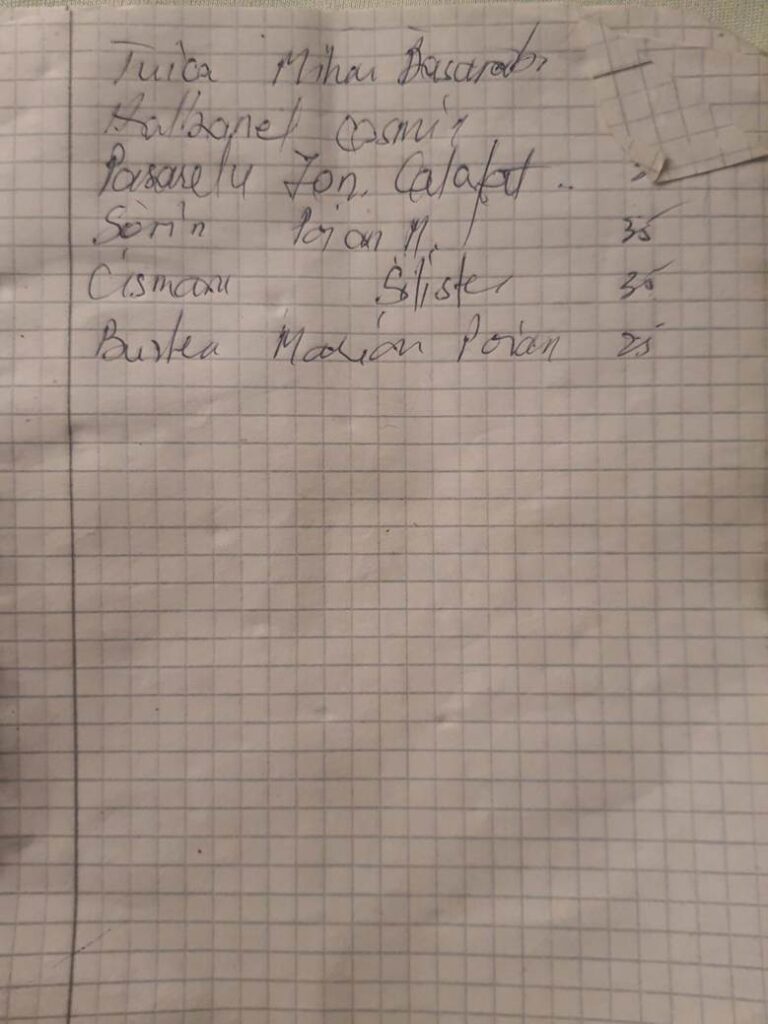 Tuica Mihai Basarabi
Cosmin
Pasarelu Ion. Calafat ..
Sorin Poian M. 35
Cismaru Silister 35
Burlea Marian Poian 25